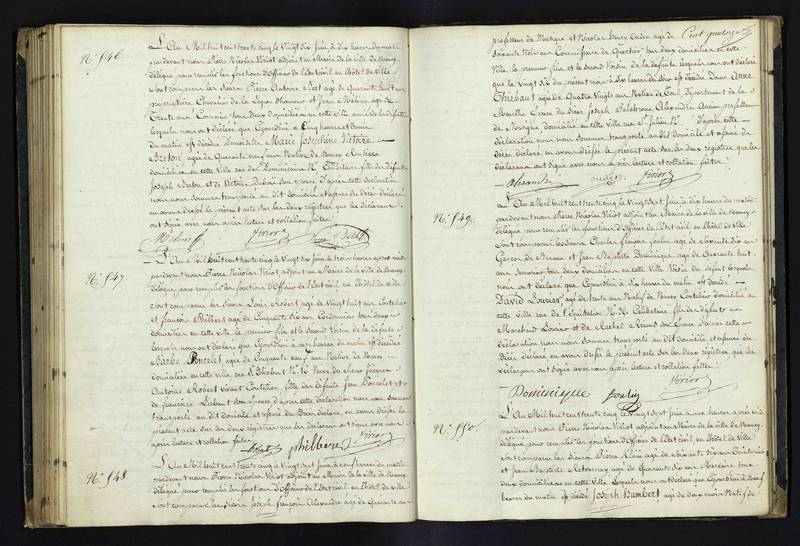 N.° 546.
L'An Mil huit cent trente cinq le Vingt six juin, à dix heures du matin
pardevant nous Pierre Nicolas Vériot adjoint au Maire de la ville de Nancy
délégué pour remplir les fonctions d'Officier de l'État civil en l'hôtel de Ville
Sont comparus les Sieurs Pierre Antoine agé de Quarante huit ans
propriétaire Chevalier de la légion d'honneur et Jean agé de
Trente ans Commis tous deux Domiciliés en cette ville amis de la défunte
lesquels nous ont déclaré que Cejourd'hui à Cinq heures et Demie
du matin est décédée Demoiselle Marie Joséphine Victoire
Breton agée de Quarante neuf ans Native de Nancy Rentière
domiciliée en cette Ville rue des Dominicains N.° Célibataire fille des défunts
Joseph Breton et de Victoire son épouse D'après cette déclaration
nous nous sommes transporté au dit domicile et assuré du Décès déclaré
en avons dressé le présent acte sur les deux registres que les déclarants
ont signé avec nous après lecture et collation faites
Vériot
N.° 547.
L'An Mil huit cent trente cinq le Vingt six juin à trois heures après midi
pardevant nous Pierre Nicolas Vériot, adjoint au Maire de la ville de Nancy
délégué pour remplir les fonctions d'Officier de l'État civil, en l'hôtel de Ville
Sont comparus les Sieurs Louis Robert agé de Vingt huit ans Coutelier
et françois Philbert agé de Cinquante six ans Cordonnier tous deux
domiciliés en cette ville, les premier fils et le second Voisin de la défunte
lesquels nous ont déclaré que Cejourd'hui à heures du matin est décédée
Barbe Poncelet agée de Cinquante neuf ans Native de
domiciliée en cette ville rue S.t Thiébaut N.° Veuve du Sieur pierre
Antoine Robert vivant Coutelier fille des défunts Jean Poncelet et
de françoise son épouse D'après cette déclaration nous nous sommes
transporté au dit Domicile et assuré du Décès déclaré, en avons dressé le
présent acte sur les deux registres que les déclarants ont signé avec nous
après lecture et collation faites
Robert Philbert Vériot
N.° 548
L'An Mil huit cent trente cinq le Vingt sept juin à neuf heures du matin
pardevant nous Pierre Nicolas Vériot adjoint au Maire de la ville de Nancy
délégué pour remplir les fonctions d'Officier de l'État civil en l'hôtel de Ville
Sont comparus les Sieurs Joseph françois Alexandre agé de Quarante ans
professeur de Musique et Nicolas Oudin agé de
soixante trois ans Commissaire de Quartier tous deux domiciliés en cette
Ville le premier fils et le second Voisin de la défunte lesquels nous ont déclaré
que le Vingt six du présent mois à dix heures du soir est décédée Dame Anne
Thiébaut agée de Quatre Vingts ans Native de Toul, Département de la
Meurthe Épouse du Sieur Joseph Alexandre Ancien professeur
de Musique, domiciliée en cette ville rue S.t Julien N.° D'après cette
déclaration nous nous sommes transporté au dit domicile et assuré du
Décès déclaré en avons dressé le présent acte sur les deux registres que les
déclarants ont signé avec nous après lecture et collation faites
Alexandre oudin Vériot
N.° 549.
L'An Mil huit cent trente cinq le Vingt sept juin à dix heures du matin
pardevant nous Pierre Nicolas Vériot adjoint au Maire de la ville de Nancy
délégué pour remplir les fonctions d'Officier de l'État civil en l'hôtel de Ville
Sont comparus les Sieurs Charles françois agé de soixante dix ans
Garçon de Bureau et Jean Baptiste Dominique agé de Quarante huit
ans Serrurier tous deux domiciliés en cette Ville Voisins du défunt lesquels
nous ont déclaré que Cejourd'hui à six heures du matin est décédé
David agé de trente ans Natif de Nancy Coutelier domicilié en
cette ville rue de l'Équitation N.° Célibataire fils des défunts
Marchand et de Rachel son Épouse D'après cette
déclaration nous nous sommes transporté au dit domicile et assuré du
Décès déclaré en avons dressé le présent acte sur les deux registres que les
déclarants ont signé avec nous après lecture et collation faites
Vériot
Dominique
N.° 550.
L'An Mil huit cent trente cinq le Vingt sept juin à une heure après midi
pardevant nous Pierre Nicolas Vériot adjoint au Maire de la ville de Nancy
délégué pour remplir les fonctions d'Officier de l'État civil en l'hôtel de Ville
Sont comparus les Sieurs Pierre Klein agé de soixante six ans
et Jean Baptiste agé de Quarante six ans tous
deux domiciliés en cette Ville lesquels nous ont déclaré que Cejourd'hui à Neuf
heures du matin est décédé Joseph Humbert agé de deux mois Natif de